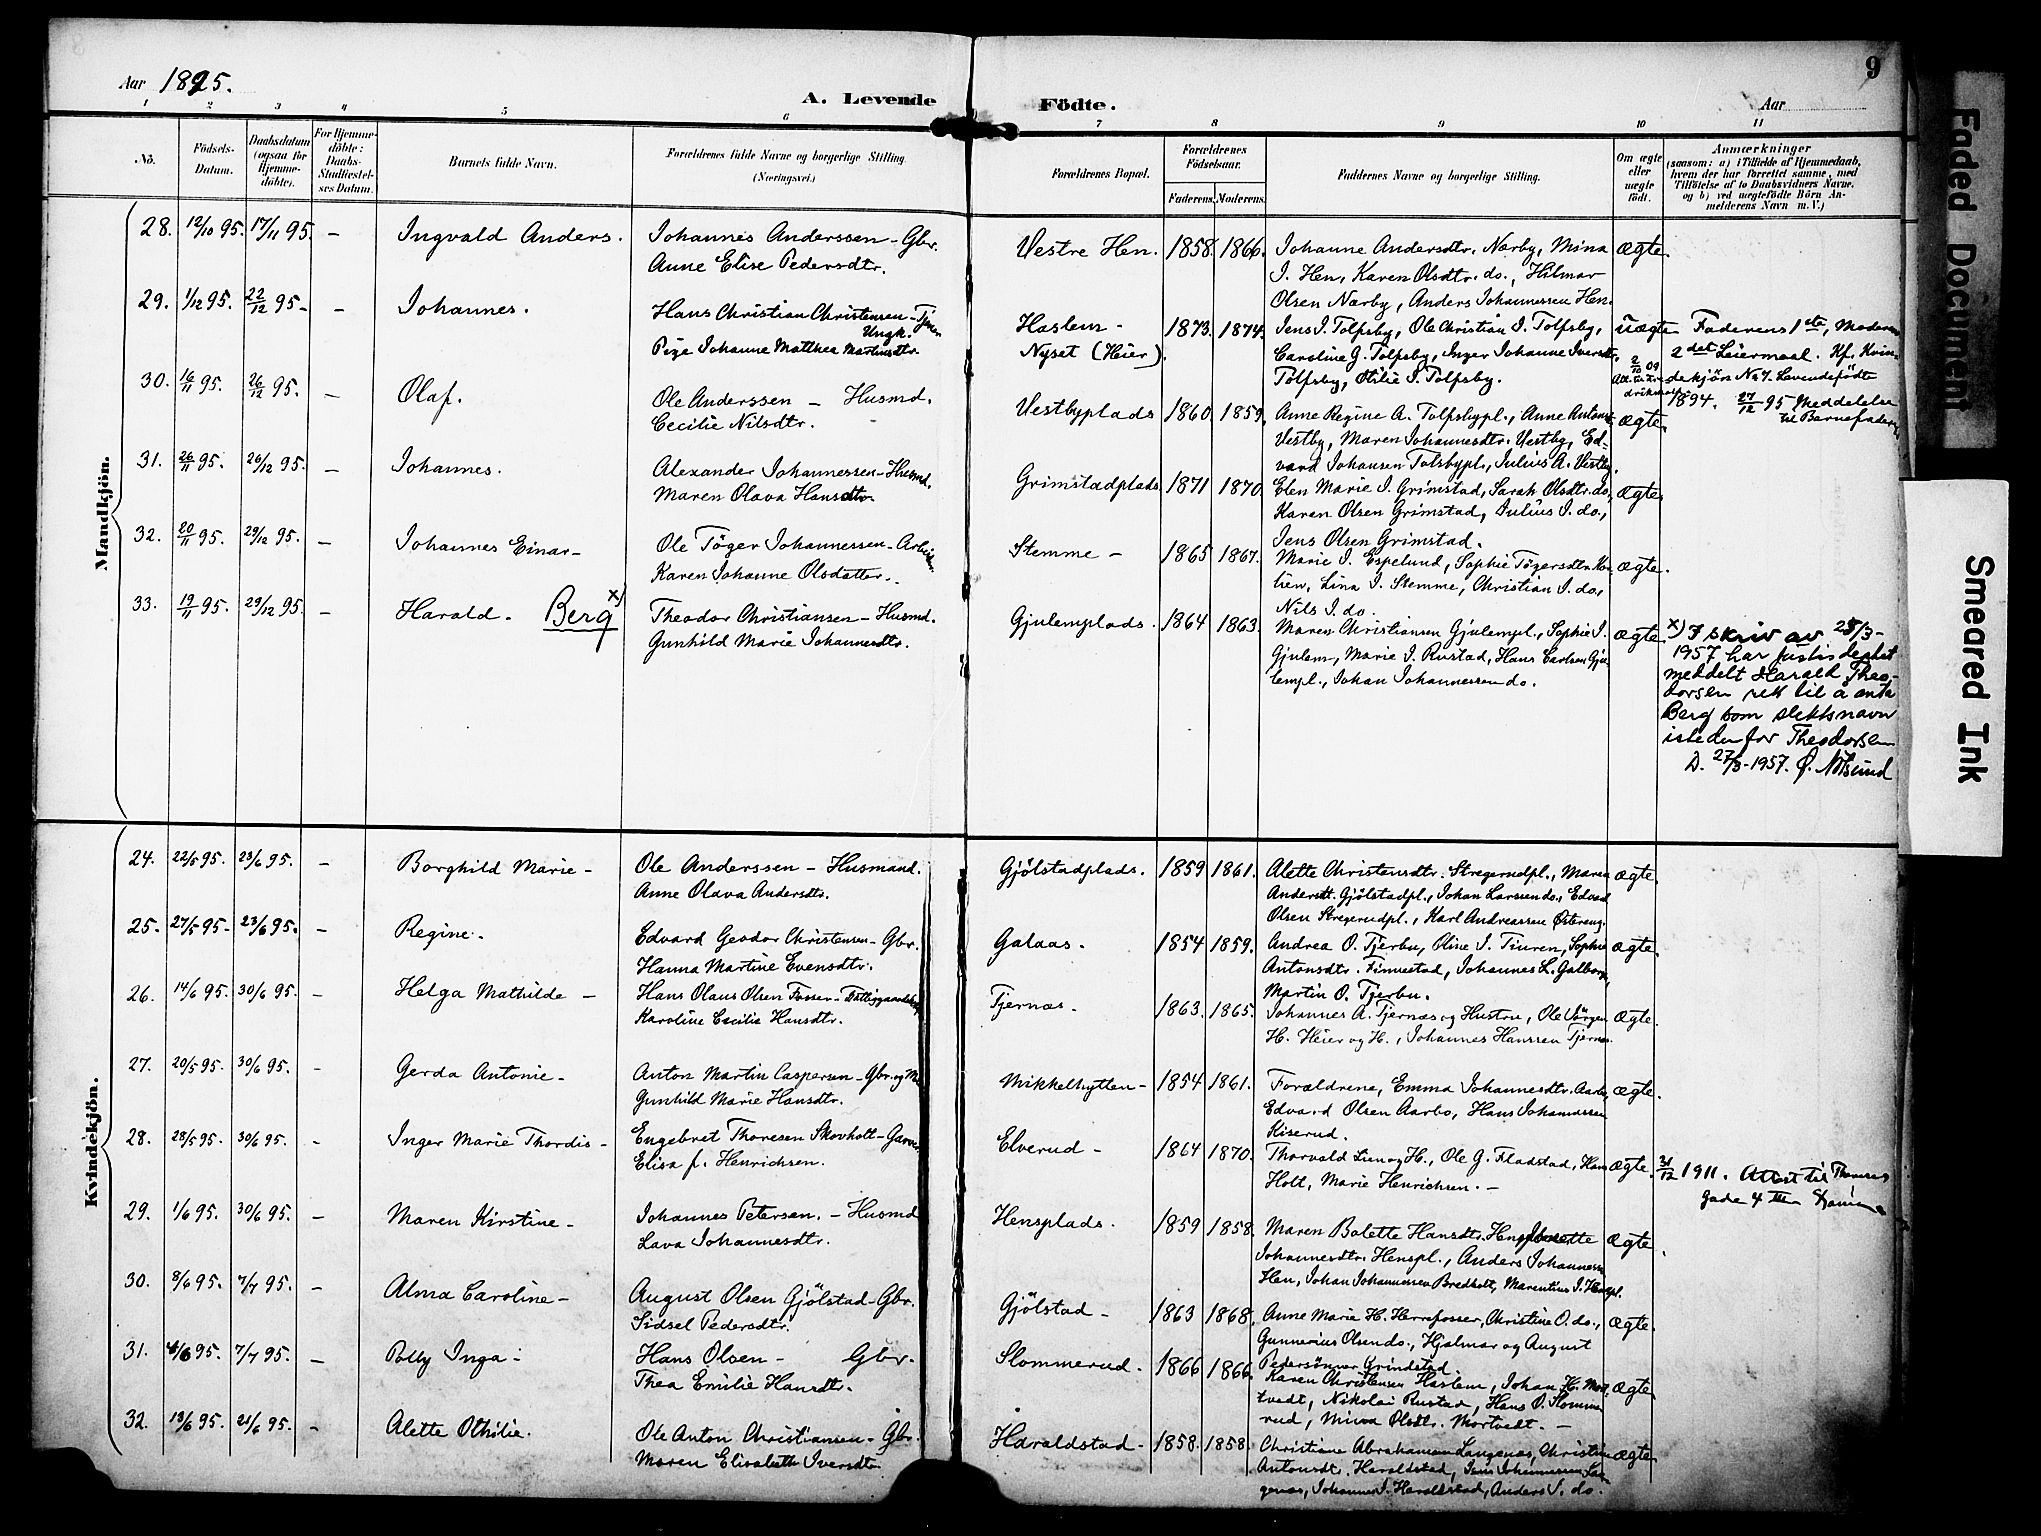 Aar 1895.
A. Levende Födte.
Aar
9
1 2 3 4 5 6 7 8 9 10 11
No.
Födsels-Datum.
Daabsdatum (ogsaa for Hjemme-döbte).
For Hjemme-döbte: Daabs-Stadfæstel-ses Datum.
Barnets fulde Navn.
Forældrenes fulde Navne og borgerlige Stilling. (Næringsvei.)
Forældrenes Bopæl.
Forældrenes Födselsaar.
Faderens. Moderens.
Faddernes Navne og borgerlige Stilling.
Om ægte eller uægte födt.
Anmærkninger
(saasom: a) i Tilfælde af Hjemmedaab,
hvem der har forrettet samme, med
Tilföielse af to Daabsvidners Navne,
og b) ved uægtefödte Börn An-
melderens Navn m. V.)
Mandkjön.
28. 12/10 95. 17/11 95. – Ingvald Anders. Johannes Anderssen – Gbr. Vestre Hen. 1858. 1866. Johanne Andersdtr. Nærby, Mina ægte.
Anne Elise Pedersdtr. I. Hen, Karen Olsdtr. do., Hilmar
Olsen Nærby, Anders Johannessen Hen.
29. 1/12 95. 22/12 95 – – Johannes. Hans Christian Christensen – Tjener Ungk. Haslem – 1873. 1874. Jens I. Tolfsby, Ole Christian I. Tolfsby, uægte Faderens 1ste, Moderens
Pige Johanne Mathea Martinsdtr. Nyset (Heier). Caroline G. Tolfsby, Inger Johanne Iversdtr. 2det Leiermaal. Kf. Kvin-
Tolfsby, Otilie I. Tolfsby. 2/10 09 dekjön No 7. Levendefödte
30. 16/11 95. 26/12 95. – Olaf. Ole Anderssen – Husmd. Vestbyplads 1860. 1859. Anne Regine A. Tolfsbypl., Anne Antons ægte. 1894. 27/12 95 Meddelelse
Cecilie Nilsdtr. Vestby, Maren Johannesdtr. Vestby, Ed- til Barnefader
vard Johansen Tolsbypl., Julius A. Vestby.
31. 26/11 95. 26/12 95. – Johannes. Alexander Johannessen – Husmd. Grimstadplads 1871 1870. Elen Marie I. Grimstad, Sarah Olsdtr. do, ægte.
Maren Olava Hansdtr. Karen Olsen Grimstad, Julius I. do.,
Jens Olsen Grimstad.
32. 20/11 95. 29/12 95. – Johannes Einar – Ole Töger Johannessen – Arbeider Stemme – 1865 1867. Marie I. Espelund, Sophie Tögersdtr. ægte.
Karen Johanne Olsdatter. Lina I. Stemme, Christian I. do,
Nils I. do.
33. 19/11 95. 29/12 95. – Harald. Berg x) Theodor Christiansen – Husmd. Gjulemplads. 1864 1863. Maren Christiansen Gjulempl., Sophie I. ægte
Gunhild Marie Johannesdtr. Gjulem, Marie I. Rustad, Hans Carlsen Gju-
lempl., Johan Johannessen do.
x) I skriv av 25/3-
1957 har justisdeptet
meddelt Harald Theo-
dorsen rett til å anta
Berg som slektsnavn
istedenfor Theodorsen
D. 27/3-1957. Ø.
Kvindekjön.
24. 22/5 95. 23/6 95. – Borghild Marie – Ole Anderssen – Husmand. Gjölstadplads. 1859 1861. Alette Christensdtr. Stregerudpl., Maren ægte.
Anne Olava Andersdtr. Andersdt. Gjölstadpl., Johan Larssen do., Edvard
Olsen Stregerudpl., Karl Andreassen Östereng.
25. 27/5 95 – 23/6 95. – Regine. Edvard Geodor Christensen – Gbr. Galaas. 1854 1859. Andrea O. Tjerbu, Oline I. Tiuren, Sophie ægte.
Hanna Martine Evensdtr. Antonsdtr. Finnestad, Johannes L. Galborg,
Martin O. Tjerbu.
26. 14/6 95. 30/6 95. – Helga Mathilde – Hans Olaus Olsen Fosser Tjernæs. 1863. 1865. Johannes A. Tjernæs og Hustru, Ole Jörgen ægte.
Karoline Cecilie Hansdtr. H. Heier og H., Johannes Hanssen Tjernæs.
27. 20/5 95. 30/6 95. – Gerda Antonie – Anton Martin Caspersen – Gbr. og Mikkelhytten – 1854 1861. Forældrene, Emma Johannesdtr. Aarbo, ægte.
Gunhild Marie Hansdtr. Edvard Olsen Aarbo, Hans Johannessen
Kiserud.
28. 28/5 95. 30/6 95. – Inger Marie Thordis – Engebret Thoresen Skovholt – Garver Elverud – 1864 1870. Thorvald Lien og H., Ole G. Fladstad, Hans ægte. 31/12 1911. Attest til Thereses
Elisa f. Henrichsen. Holt, Marie Henrichsen. – gade 4
29. 1/6 95. 30/6 95. – Maren Kirstine – Johannes Petersen. – Husmd Hensplads. 1859 1858. Maren Bolette Hansdtr. Hengspl. ægte.
Lava Johannesdtr. Johannesdtr. Henspl., Anders Johannessen
Hen, Johan Johannessen Bredholt, Marentius I. Henspl.
30. 8/6 95. 7/7 95. – Alma Caroline – August Olsen Gjölstad – Gbr. Gjölstad – 1863 1868. Anne Marie H. Herrefosser, Christine O. do., ægte.
Sidsel Pedersdtr. Gunnerius Olsen do., Hjalmar og August
Pedersönner Grindstad.
31. 4/6 95. 7/7 95. – Polly Inga – Hans Olsen – Gbr. Slommerud. 1866 1866. Karen Christensen Haslem, Johan H. Mort- ægte
Thea Emilie Hansdtr. tvedt, Nikolai Rustad, Hans O. Slomme-
rud, Minva Olsdtr. Mortvedt. –
32. 13/6 95. 21/6 95. – Alette Othilie. Ole Anton Christiansen – Gbr. Haraldstad – 1858. 1858. Christiane Abrahamsen Langenæs, Christine ægte
Maren Elisabeth Iversdtr. Antonsdt. Haraldstad, Jens Johannessen Lan-
genæs, Johannes I. Haraldstad, Anders I. do.
Faded Document
Smeared Ink